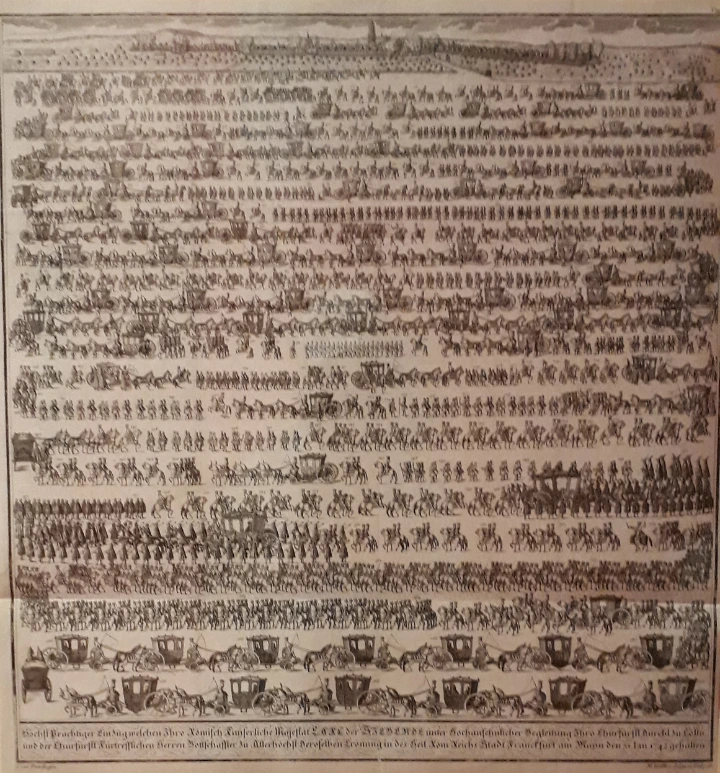 Höchst Prächtiger Einzug welchen Ihro Römisch Kayserliche Majestät CARL der SIEBENDE unter Hochansehnlicher Begleitung Ihro Churfürstl Durchl zu Cölln
und der Churfürstl Fürtrefflichen Herren Bottschaffter zu Allerhöchst Deroselben Crönung in des Heil Röm Reichs Stadt Franckfurt am Mayn den 31 Jan 1742 gehalten